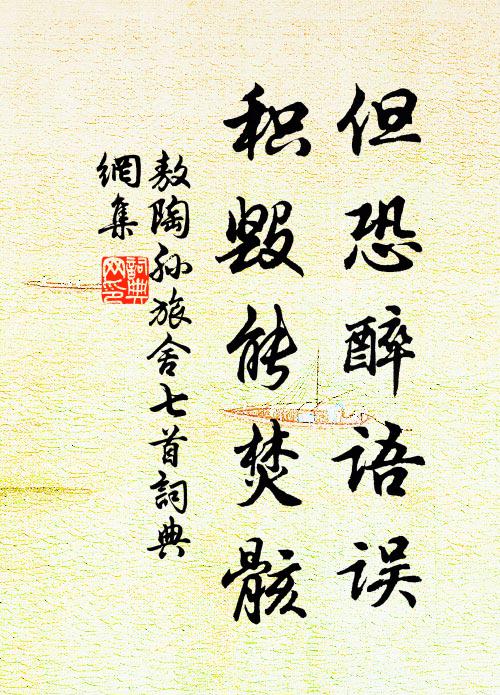 但恐醉语误
积毁能焚骸
敖陶孙旅舍七首詞典
網集
詞典網印